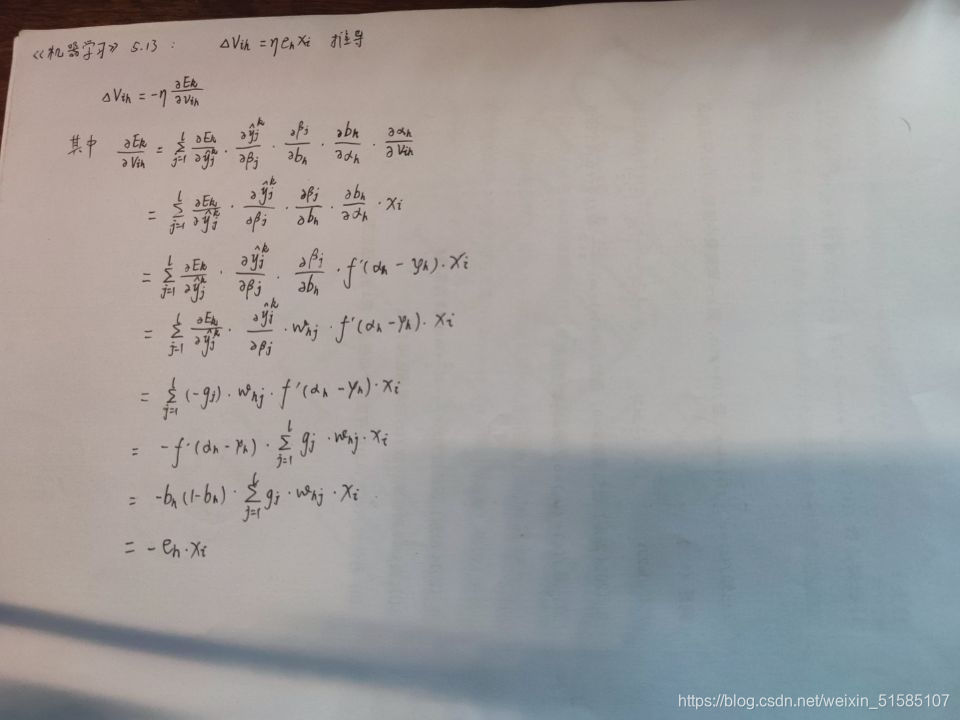 《机器学习》 5.13 : ΔVih = ηehxi 推导
ΔVih = -η ∂Ek/∂Vih
其中 ∂Ek/∂Vih = Σ(j=1→l) ∂Ek/∂ŷj^k · ∂ŷj^k/∂βj · ∂βj/∂bh · ∂bh/∂αh · ∂αh/∂Vih
= Σ(j=1→l) ∂Ek/∂ŷj^k · ∂ŷj^k/∂βj · ∂βj/∂bh · ∂bh/∂αh · xi
= Σ(j=1→l) ∂Ek/∂ŷj^k · ∂ŷj^k/∂βj · ∂βj/∂bh · f'(αh - γh) · xi
= Σ(j=1→l) ∂Ek/∂ŷj^k · ∂ŷj^k/∂βj · whj · f'(αh - γh) · xi
= Σ(j=1→l) (-gj) · whj · f'(αh - γh) · xi
= -f'(αh - γh) · Σ(j=1→l) gj · whj · xi
= -bh(1-bh) · Σ(j=1→l) gj · whj · xi
= -eh · xi
https://blog.csdn.net/weixin_51585107